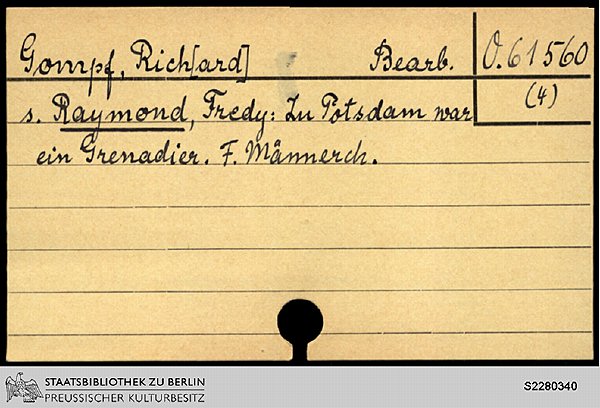 Gompf, Rich[ard] Bearb. O.61560
(4)
s. Raymond, Fredy: Zu Potsdam war
ein Grenadier. F. Männerch.
STAATSBIBLIOTHEK ZU BERLIN
PREUSSISCHER KULTURBESITZ
S2280340